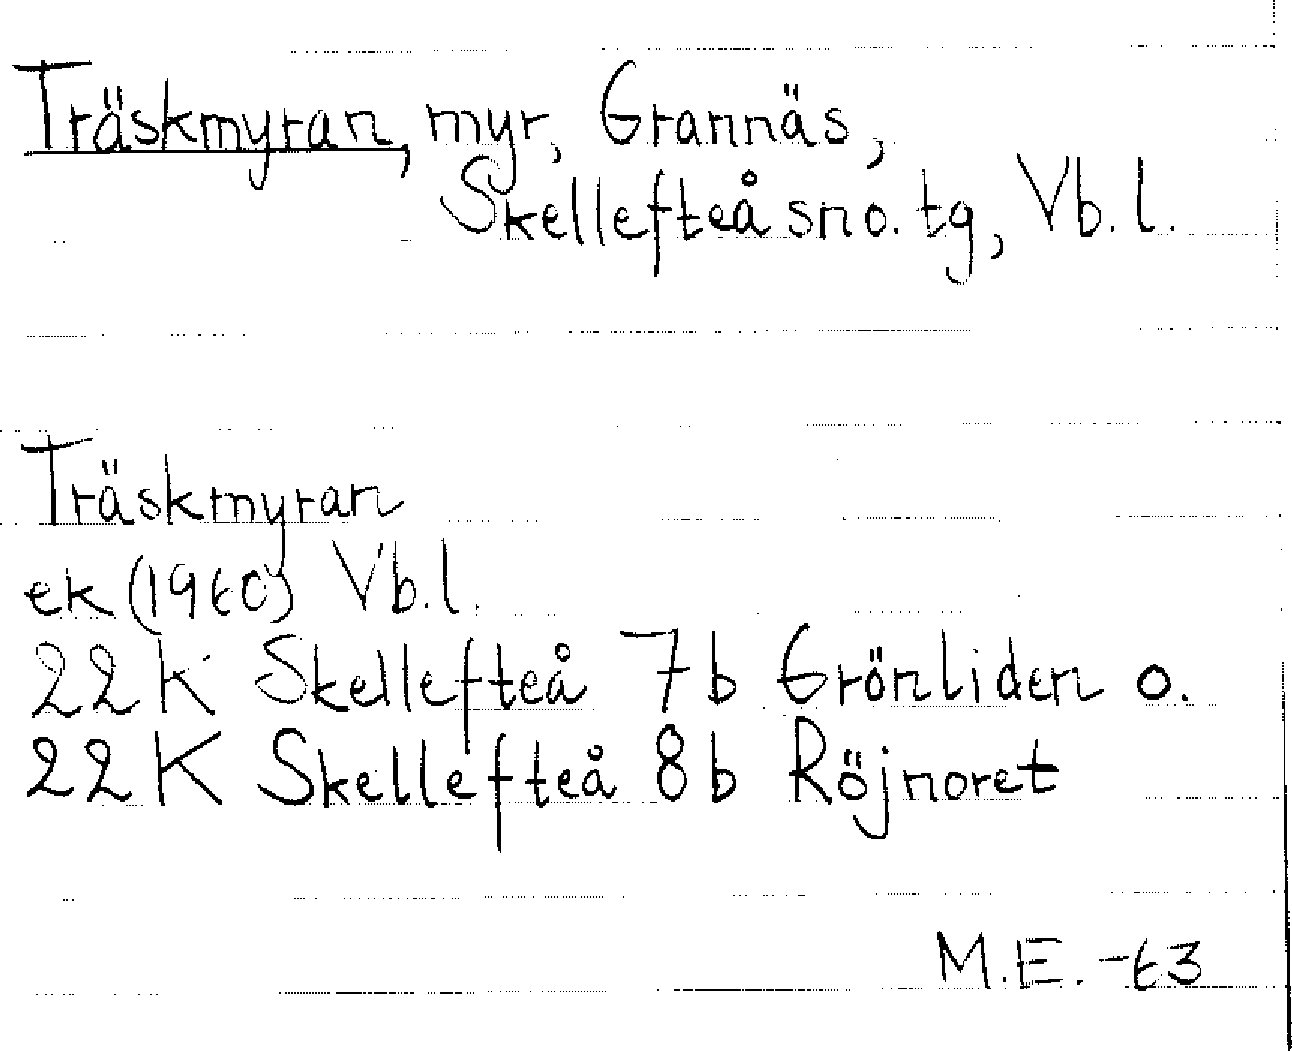 Träskmyran, myr, Grannäs,
Skellefteå sno. tg, Vb. l.
Träskmyran
ek (1960) Vb. l.
22 K Skellefteå 7b Grönliden o.
22 K Skellefteå 8b Röjnoret
M.E. -63